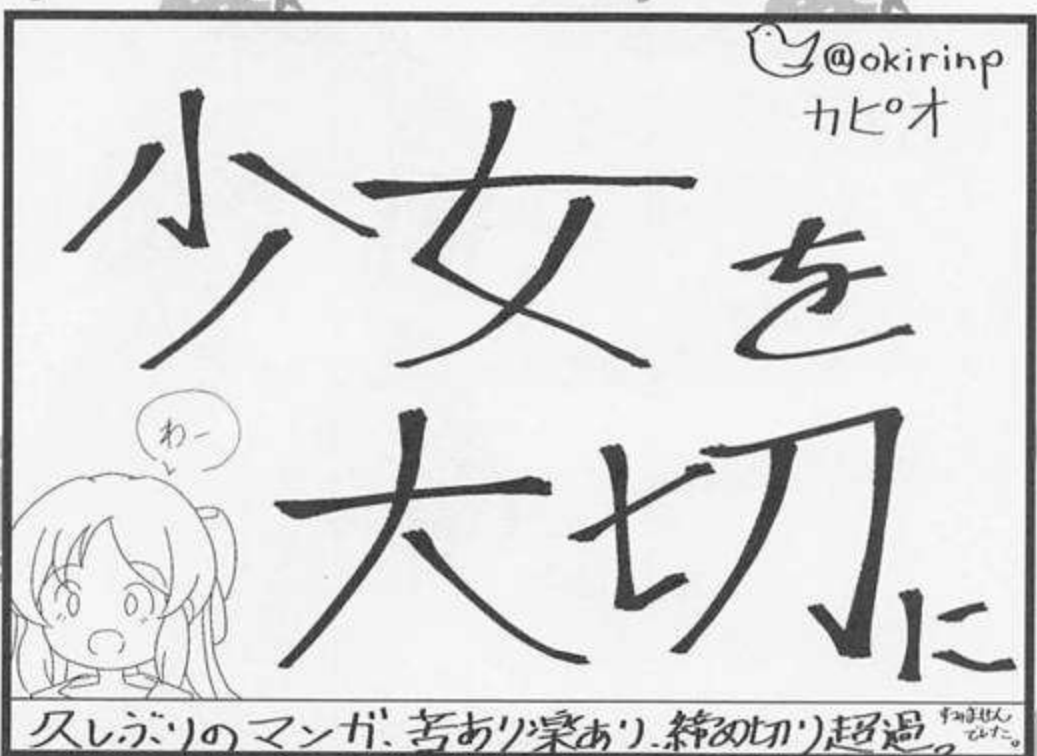 @okirinp
カピオ
少女を
大切に
わー
久しぶりのマンガ、苦あり楽あり、締め切り超過。
すみません
でした。